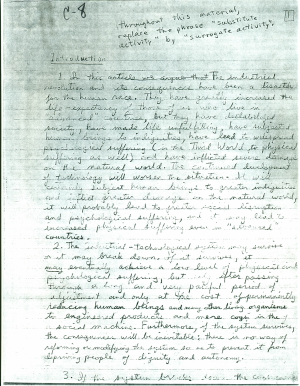 C-8
throughout this material,
replace the phrase "substitute
activity" by "surrogate activity".
1
Introduction
1. In this article we argue that the industrial
revolution and its consequences have been a disaster
for the human race. They have greatly increased the
life-expectancy of those of us who live in
"advanced" countries, but they have destabilized
society, have made life unfulfilling, have subjected
human beings to indignities, have lead to widespread
psychological suffering (in the Third World, to physical
suffering as well) and have inflicted severe damage
on the natural world. The continued development
of technology will worsen the situation. It will
certainly subject human beings to greater indignities
and inflict greater damage on the natural world,
it will probably lead to greater social disruption
and psychological suffering, and it may lead to
increased physical suffering even in "advanced"
countries.
2. The industrial-technological system may survive
or it may break down. If it survives, it
may eventually achieve a low level of physical and
psychological suffering, but only after passing
through a long and very painful period of
adjustment and only at the cost of permanently
reducing human beings and many other living organisms
to engineered products and mere cogs in the
social machine. Furthermore, if the system survives,
the consequences will be inevitable; there is no way of
reforming or modifying the system so as to prevent it from
depriving people of dignity and autonomy.
3. If the system breaks down the